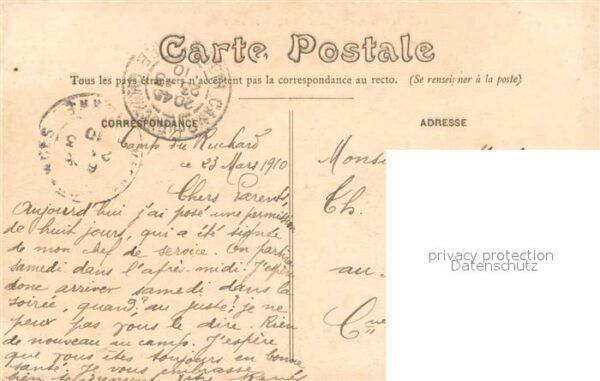 Carte Postale
Tous les pays étrangers n'acceptent pas la correspondance au recto. (Se renseigner à la poste)
CORRESPONDANCE
ADRESSE
Camp du Ruchard
ce 23 Mars 1910
Chers Parents,
Aujourd'hui j'ai posé une permission
de huit jours, qui a été signée
de mon chef de service. On partira
samedi dans l'après-midi. J'espère
donc arriver samedi dans la
soirée, quand? au juste? je ne
peux pas vous le dire. Rien
de nouveau au camp. J'espère
que vous êtes toujours en bonne
santé. Je vous embrasse
bien
Th.
au
privacy protection
Datenschutz